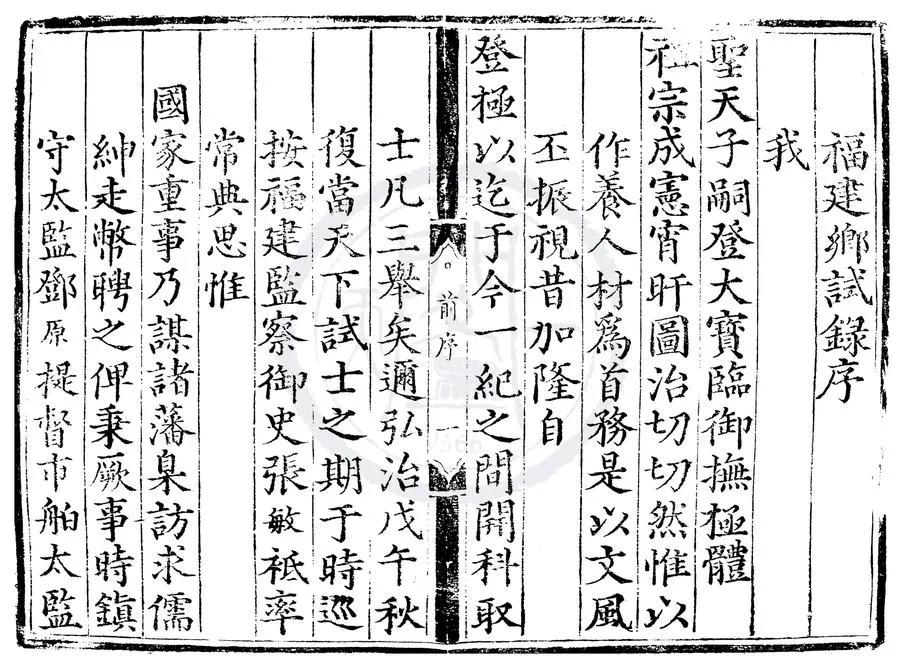 福建鄉試錄序
我
聖天子嗣登大寶臨御撫極體
祖宗成憲宵旰圖治切切然惟以
作養人材爲首務是以文風
丕振視昔加隆自
登極以迄于今一紀之間開科取
前序 一
士凡三舉矣邇弘治戊午秋
復當天下試士之期于時巡
按福建監察御史張敏祗率
常典思惟
國家重事乃謀諸藩臬訪求儒
紳走幣聘之俾秉厥事時鎮
守太監鄧原提督市舶太監